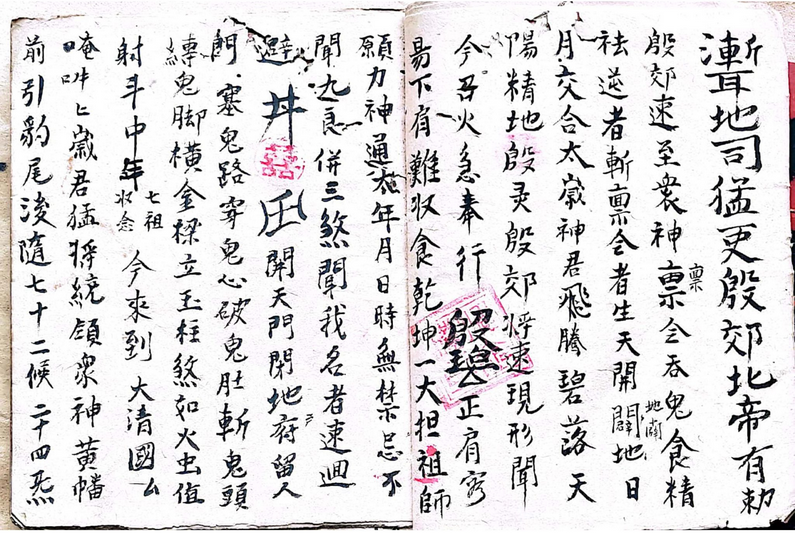 地司猛吏殷郊北帝有勅
殷郊速至眾神稟令吞鬼食精
祛逆者斬稟令者生天開地闢日
月交合太歲神君飛騰碧落天
陽精地殷灵殷郊將速現形聞
今召火急奉行 正肩
下有難收食乾坤一大担祖師
願力神通 年月日時無禁忌不
聞九良併三煞聞我名者速迴
避 井 囍 開天門閉地府留人
門塞鬼路穿鬼心破鬼肚斬鬼頭
鬼脚橫金樑立玉柱煞如火虫值
射斗中年 七祖 收念 今來到大清國厶
唵吽 歲君猛將統領眾神黃幡
前引豹尾後隨七十二候二十四炁